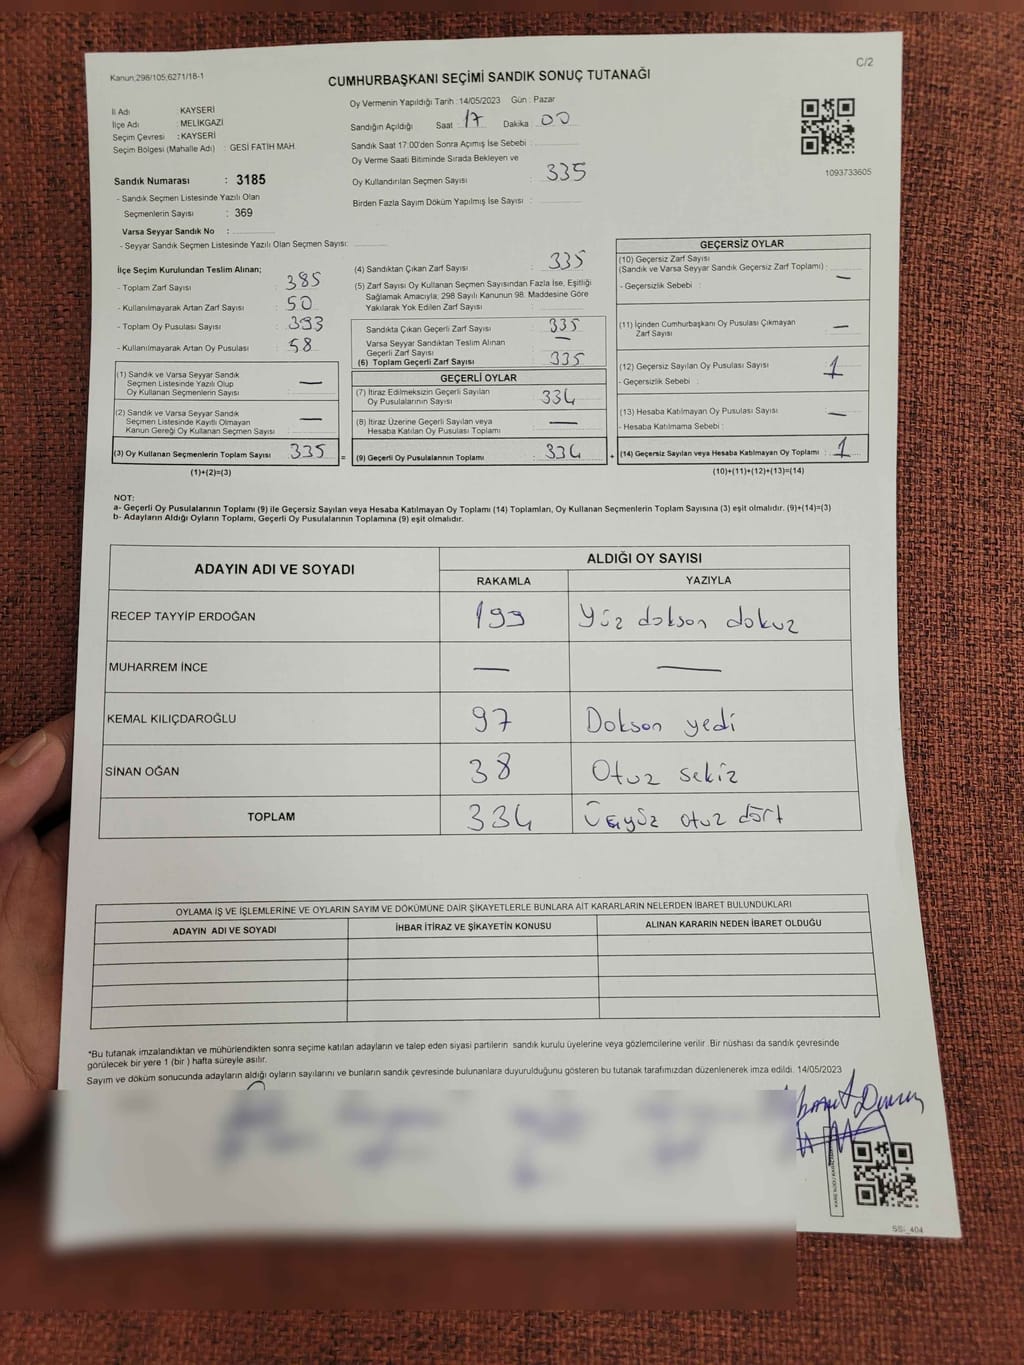 Kanun,298/105,6271/18-1
C/2
CUMHURBAŞKANI SEÇİMİ SANDIK SONUÇ TUTANAĞI
İl Adı : KAYSERİ
İlçe Adı : MELİKGAZİ
Seçim Çevresi : KAYSERİ
Seçim Bölgesi (Mahalle Adı) : GESİ FATİH MAH.
Sandık Numarası : 3185
- Sandık Seçmen Listesinde Yazılı Olan
Seçmenlerin Sayısı : 369
Varsa Seyyar Sandık No :
- Seyyar Sandık Seçmen Listesinde Yazılı Olan Seçmen Sayısı:
Oy Vermenin Yapıldığı Tarih :14/05/2023 Gün : Pazar
Sandığın Açıldığı Saat : 17 Dakika 00
Sandık Saat 17.00'den Sonra Açımış İse Sebebi :
Oy Verme Saati Bitiminde Sırada Bekleyen ve
Oy Kullandırılan Seçmen Sayısı : 335
Birden Fazla Sayım Döküm Yapılmış İse Sayısı :
1093733605
İlçe Seçim Kurulundan Teslim Alınan;
- Toplam Zarf Sayısı : 385
- Kullanılmayarak Artan Zarf Sayısı : 50
- Toplam Oy Pusulası Sayısı : 393
- Kullanılmayarak Artan Oy Pusulası : 58
(1) Sandık ve Varsa Seyyar Sandık
Seçmen Listesinde Yazılı Olup
Oy Kullanan Seçmenlerin Sayısı : —
(2) Sandık ve Varsa Seyyar Sandık
Seçmen Listesinde Kayıtlı Olmayan
Kanun Gereği Oy Kullanan Seçmen Sayısı : —
(3) Oy Kullanan Seçmenlerin Toplam Sayısı : 335
(1)+(2)=(3)
(4) Sandıktan Çıkan Zarf Sayısı : 335
(5) Zarf Sayısı Oy Kullanan Seçmen Sayısından Fazla İse, Eşitliği
Sağlamak Amacıyla, 298 Sayılı Kanunun 98. Maddesine Göre
Yakılarak Yok Edilen Zarf Sayısı :
Sandıkta Çıkan Geçerli Zarf Sayısı : 335
Varsa Seyyar Sandıktan Teslim Alınan
Geçerli Zarf Sayısı : —
(6) Toplam Geçerli Zarf Sayısı : 335
GEÇERLİ OYLAR
(7) İtiraz Edilmeksizin Geçerli Sayılan
Oy Pusulalarının Sayısı : 334
(8) İtiraz Üzerine Geçerli Sayılan veya
Hesaba Katılan Oy Pusulası Toplamı : —
=
(9) Geçerli Oy Pusulalarının Toplamı : 334
+
GEÇERSİZ OYLAR
(10) Geçersiz Zarf Sayısı
(Sandık ve Varsa Seyyar Sandık Geçersiz Zarf Toplamı) : —
- Geçersizlik Sebebi :
(11) İçinden Cumhurbaşkanı Oy Pusulası Çıkmayan
Zarf Sayısı : —
(12) Geçersiz Sayılan Oy Pusulası Sayısı : 1
- Geçersizlik Sebebi :
(13) Hesaba Katılmayan Oy Pusulası Sayısı : —
- Hesaba Katılmama Sebebi :
(14) Geçersiz Sayılan veya Hesaba Katılmayan Oy Toplamı : 1
(10)+(11)+(12)+(13)=(14)
NOT:
a- Geçerli Oy Pusulalarının Toplamı (9) ile Geçersiz Sayılan veya Hesaba Katılmayan Oy Toplamı (14) Toplamları, Oy Kullanan Seçmenlerin Toplam Sayısına (3) eşit olmalıdır. (9)+(14)=(3)
b- Adayların Aldığı Oyların Toplamı, Geçerli Oy Pusulalarının Toplamına (9) eşit olmalıdır.
ADAYIN ADI VE SOYADI
ALDIĞI OY SAYISI
RAKAMLA YAZIYLA
RECEP TAYYİP ERDOĞAN 199 Yüz dokson dokuz
MUHARREM İNCE — —
KEMAL KILIÇDAROĞLU 97 Dokson yedi
SİNAN OĞAN 38 Otuz sekiz
TOPLAM 334 Üçyüz otuz dört
OYLAMA İŞ VE İŞLEMLERİNE VE OYLARIN SAYIM VE DÖKÜMÜNE DAİR ŞİKAYETLERLE BUNLARA AİT KARARLARIN NELERDEN İBARET BULUNDUKLARI
ADAYIN ADI VE SOYADI İHBAR İTİRAZ VE ŞİKAYETİN KONUSU ALINAN KARARIN NEDEN İBARET OLDUĞU
*Bu tutanak imzalandıktan ve mühürlendikten sonra seçime katılan adayların ve talep eden siyasi partilerin sandık kurulu üyelerine veya gözlemcilerine verilir. Bir nüshası da sandık çevresinde
görülecek bir yere 1 (bir ) hafta süreyle asılır.
Sayım ve döküm sonucunda adayların aldığı oyların sayılarını ve bunların sandık çevresinde bulunanlara duyurulduğunu gösteren bu tutanak tarafımızdan düzenlenerek imza edildi. 14/05/2023
SSİ_404